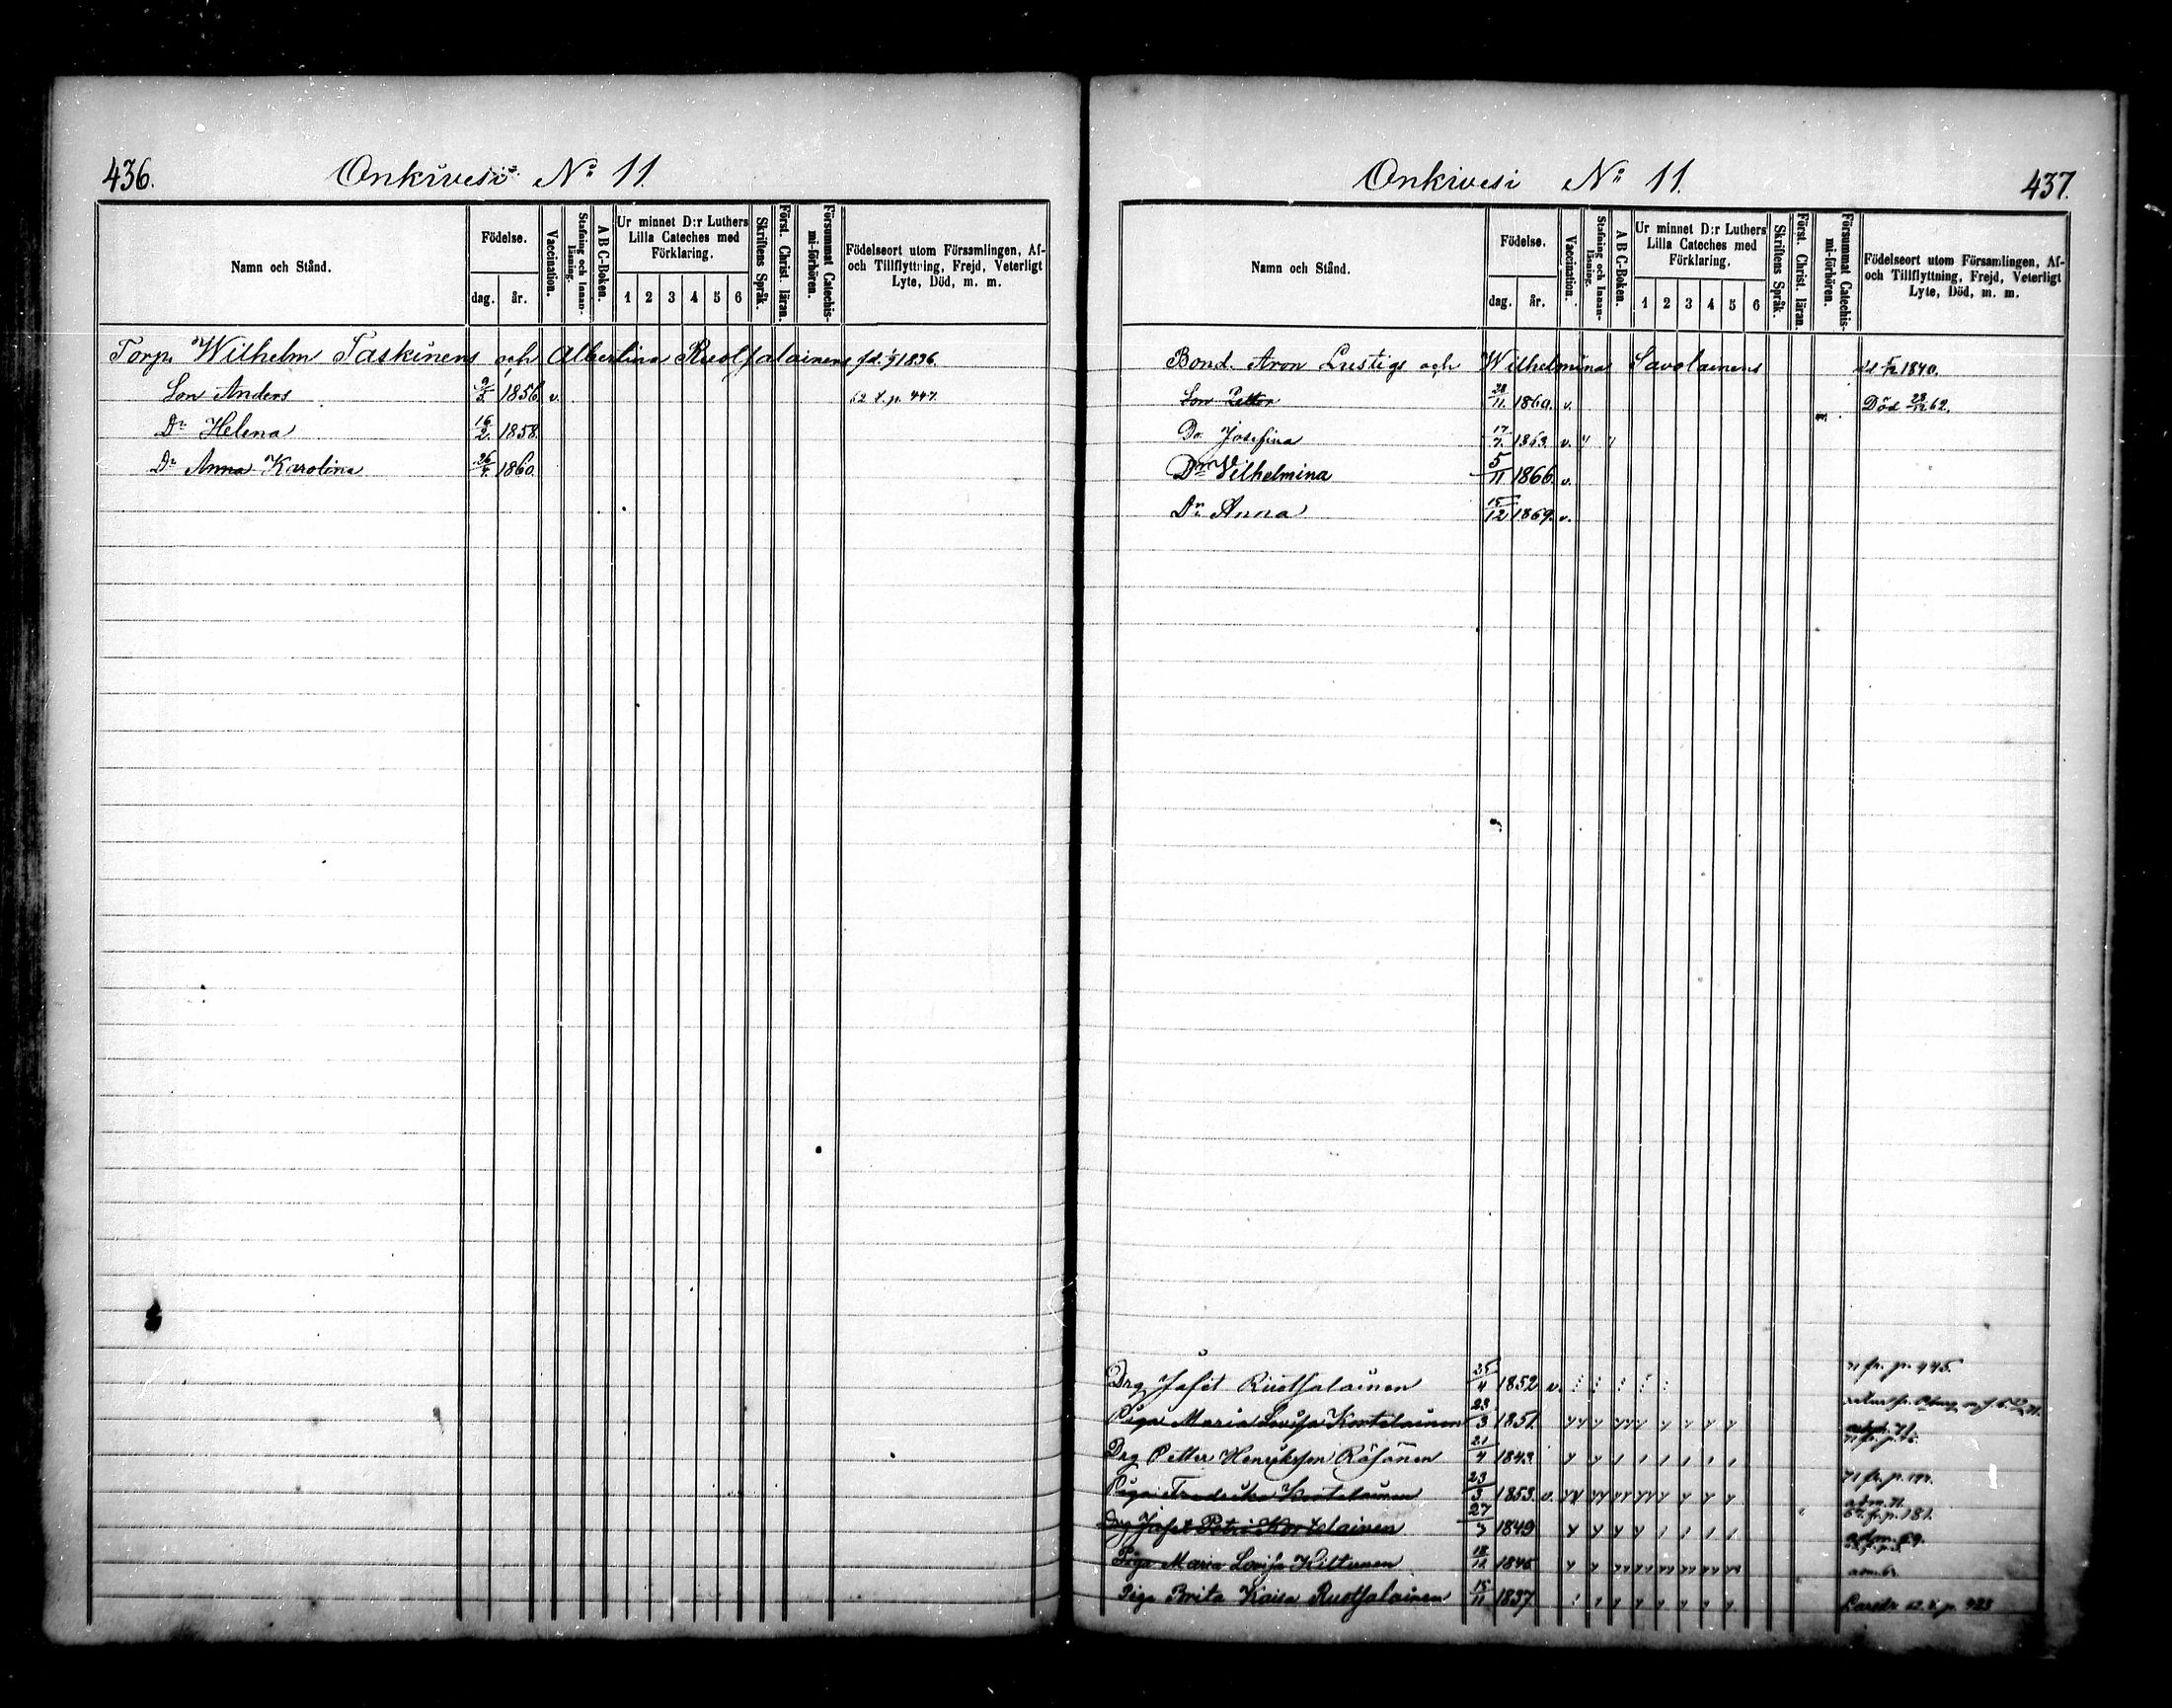 436.
Onkivesi N:o 11.
Namn och Stånd.
Födelse.
dag.
år.
Vaccination.
Stafning och Innan-läsning.
A B C-Boken.
Ur minnet D:r Luthers
Lilla Cateches med
Förklaring.
1 2 3 4 5 6
Skriftens Språk.
Först. Christ. läran.
Försummat Catechis-mi-förhören.
Födelseort utom Församlingen, Af-
och Tillflyttning, Frejd, Veterligt
Lyte, Död, m. m.
Torp. Wilhelm Taskinens och Albertina Ruotsalainens fd. 1836.
Son Anders 9/3 1856. v. 62 t. p. 447.
Dr Helena 16/2. 1858.
Dr Anna Karolina 26/4 1860.
Onkivesi N:o 11.
437.
Namn och Stånd.
Födelse.
dag.
år.
Vaccination.
Stafning och Innan-läsning.
A B C-Boken.
Ur minnet D:r Luthers
Lilla Cateches med
Förklaring.
1 2 3 4 5 6
Skriftens Språk.
Först. Christ. läran.
Försummat Catechis-mi-förhören.
Födelseort utom Församlingen, Af-
och Tillflyttning, Frejd, Veterligt
Lyte, Död, m. m.
Bond. Aron Lustigs och Wilhelmina Savolainens 1840.
Son Petter 28/11. 1860. v. Död 23/12 62.
Dr Josefina 17/7. 1863. v.
Dr Wilhelmina 5/11 1866. v.
Dr Anna 15/12 1869. v.
Drg Jafet Ruotsalainen 25/4 1852 v. 71 fr. p. 445.
Piga Maria Lovisa Kortelainen 23/3 1851.
Drg Petter Henriksson Räsänen 21/4 1843.
Piga Fredrika Kortelainen 23/3 1853. v. 71 fr. p. 197.
Drg Jafet Petri Kortelainen 27/3 1849 fr. p. 181.
Piga Maria Lovisa Kiltunen 18/12 1846
Piga Brita Kaisa Ruotsalainen 15/11 1837.